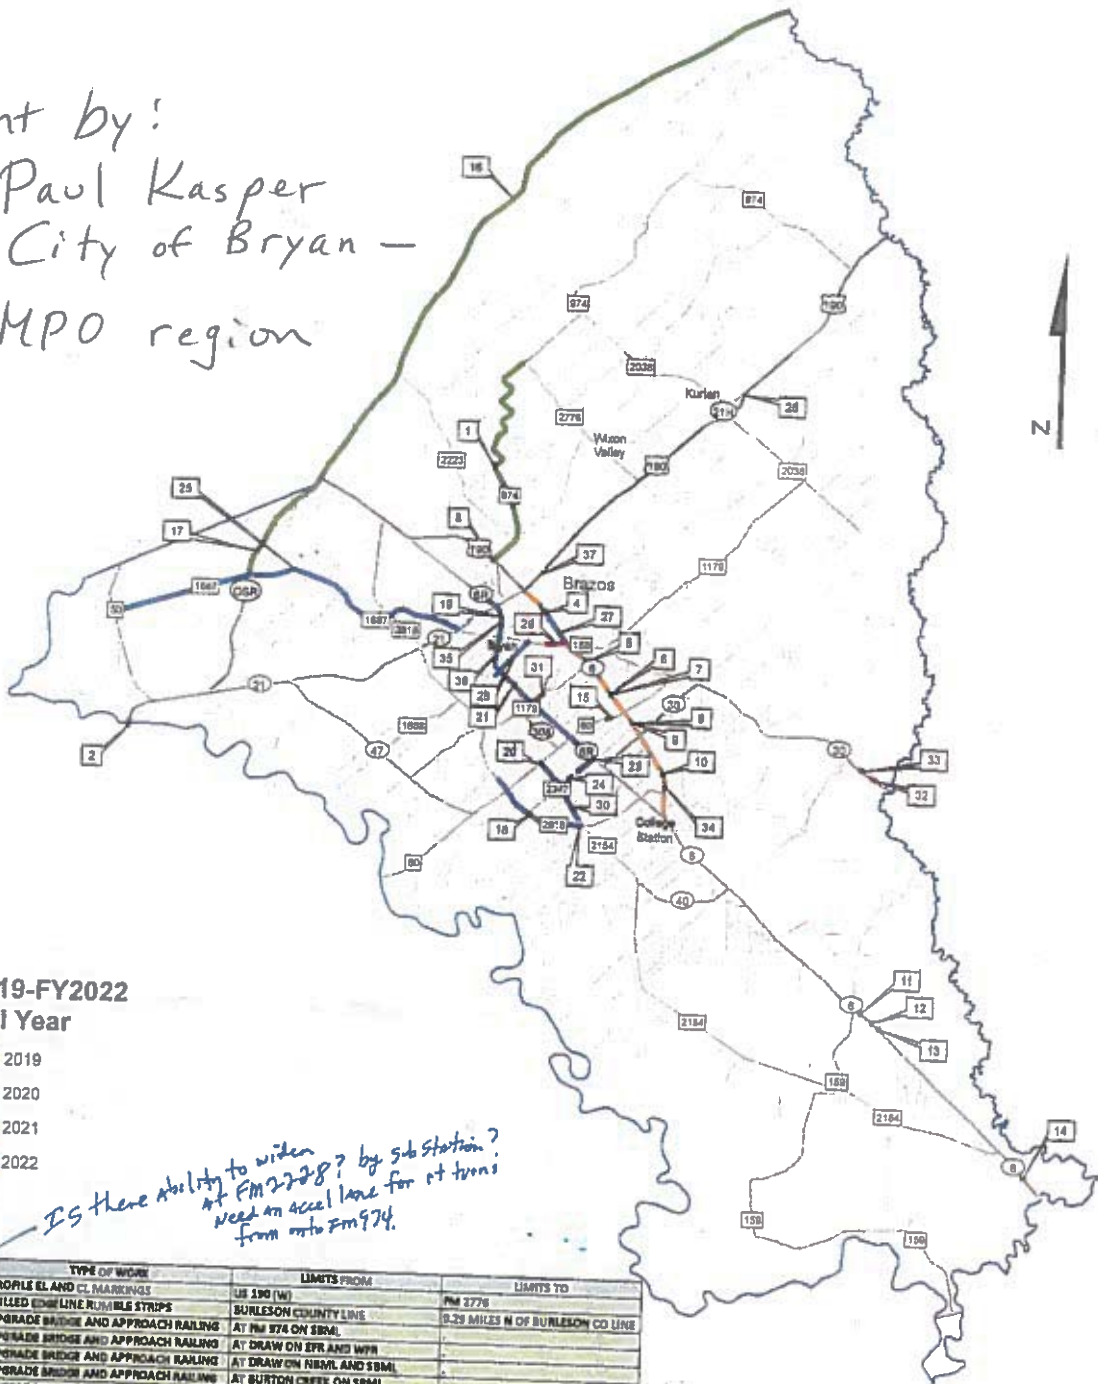 nt by:
Paul Kasper
City of Bryan -
MPO region
16
974
190
974
2038
Kurten
21H
28
1
2776
Wixon
Valley
2223
190
2038
N
25
974
17
8
190
37
1179
Brazos
1687
OSR
6R
50
19
4
1687
2818
27
21
158
5
35
6
6
7
31
15
21
1179
30
60
9
21
1688
47
20
6R
9
30
33
23
10
2
24
32
2347
30
18
2818
College
Station
34
2154
60
22
6
40
11
6
12
2154
13
159
2154
14
6
159
159
19-FY2022
l Year
2019
2020
2021
2022
Is there ability to widen
at FM2228? by substation?
Need an accel lane for rt turns
from onto FM974.
TYPE OF WORK LIMITS FROM LIMITS TO
ROFILE EL AND CL MARKINGS US 190 (W) FM 2776
ILLED EDGELINE RUMBLE STRIPS BURLESON COUNTY LINE 0.29 MILES N OF BURLESON CO LINE
PGRADE BRIDGE AND APPROACH RAILING AT FM 974 ON SBML
PGRADE BRIDGE AND APPROACH RAILING AT DRAW ON EFR AND WFR
PGRADE BRIDGE AND APPROACH RAILING AT DRAW ON NBML AND SBML
PGRADE BRIDGE AND APPROACH RAILING AT BURTON CREEK ON SBML